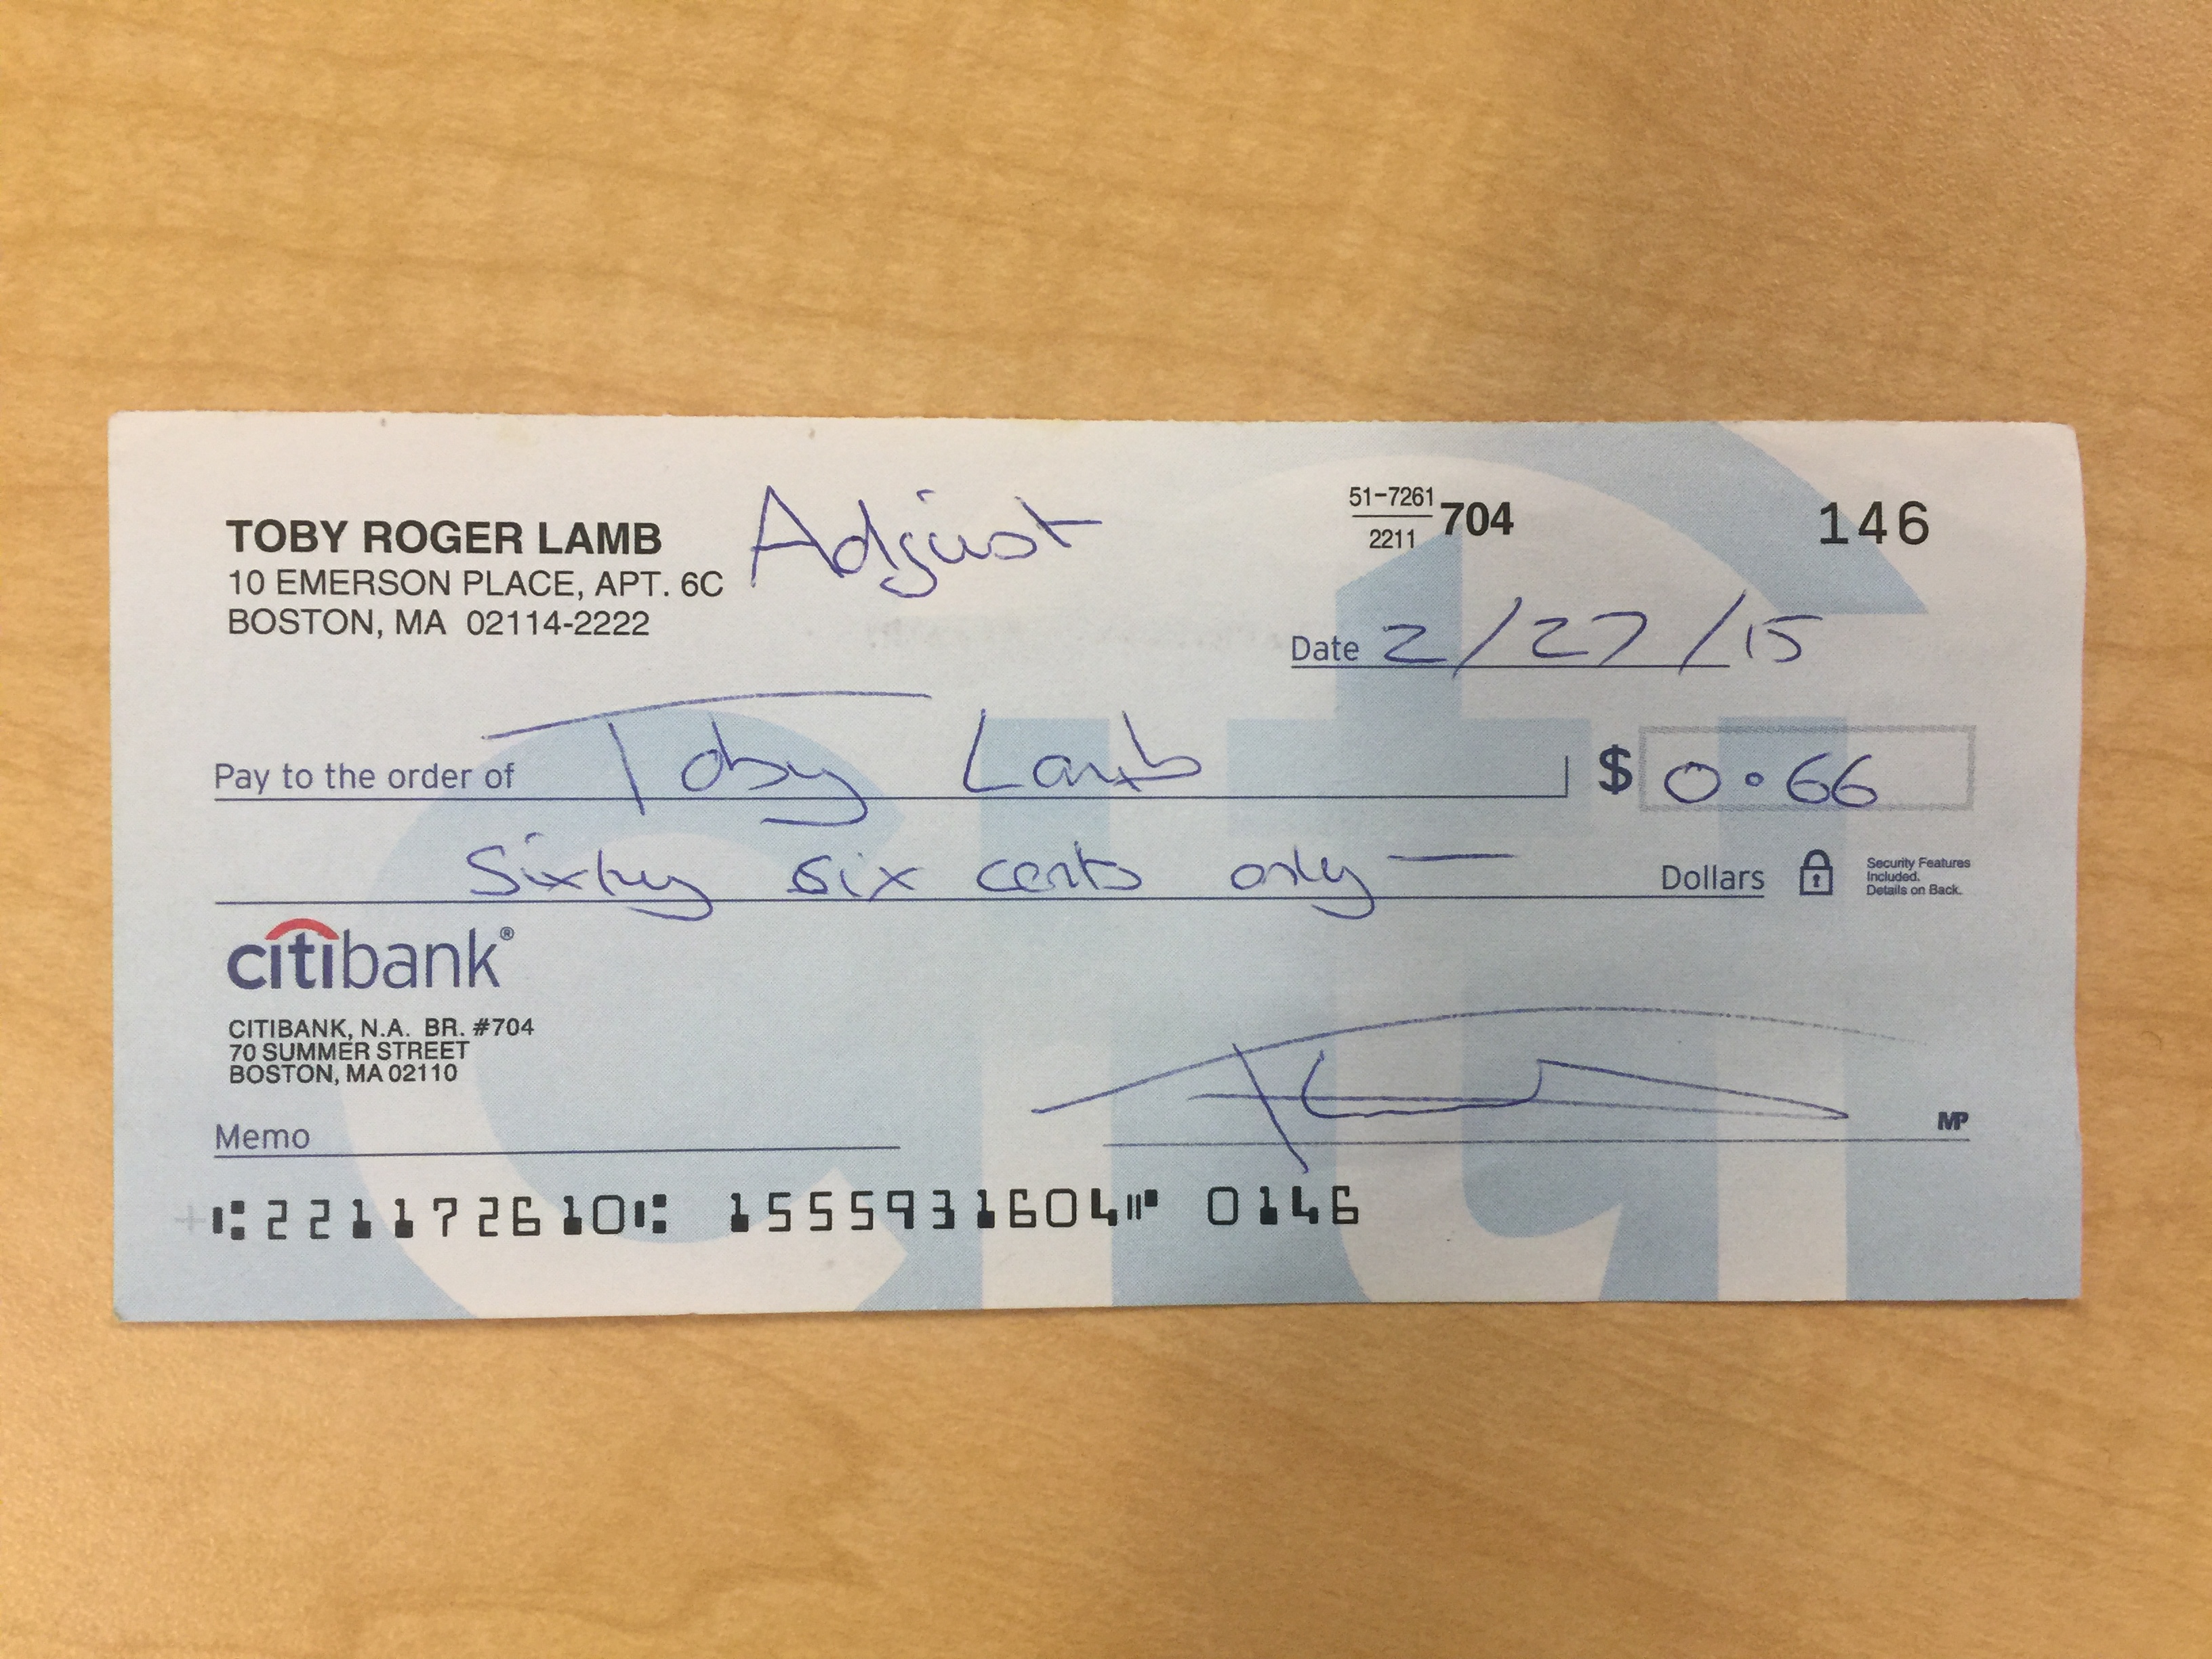 TOBY ROGER LAMB Adjust
10 EMERSON PLACE, APT. 6C
BOSTON, MA 02114-2222
51-7261
2211 704
146
Date 2/27/15
Pay to the order of Toby Lamb $ 0.66
Sixty six cents only — Dollars
Security Features
Included.
Details on Back.
citibank®
CITIBANK, N.A. BR. #704
70 SUMMER STREET
BOSTON, MA 02110
Memo
MP
⑆221172610⑆ 1555931604⑈ 0146